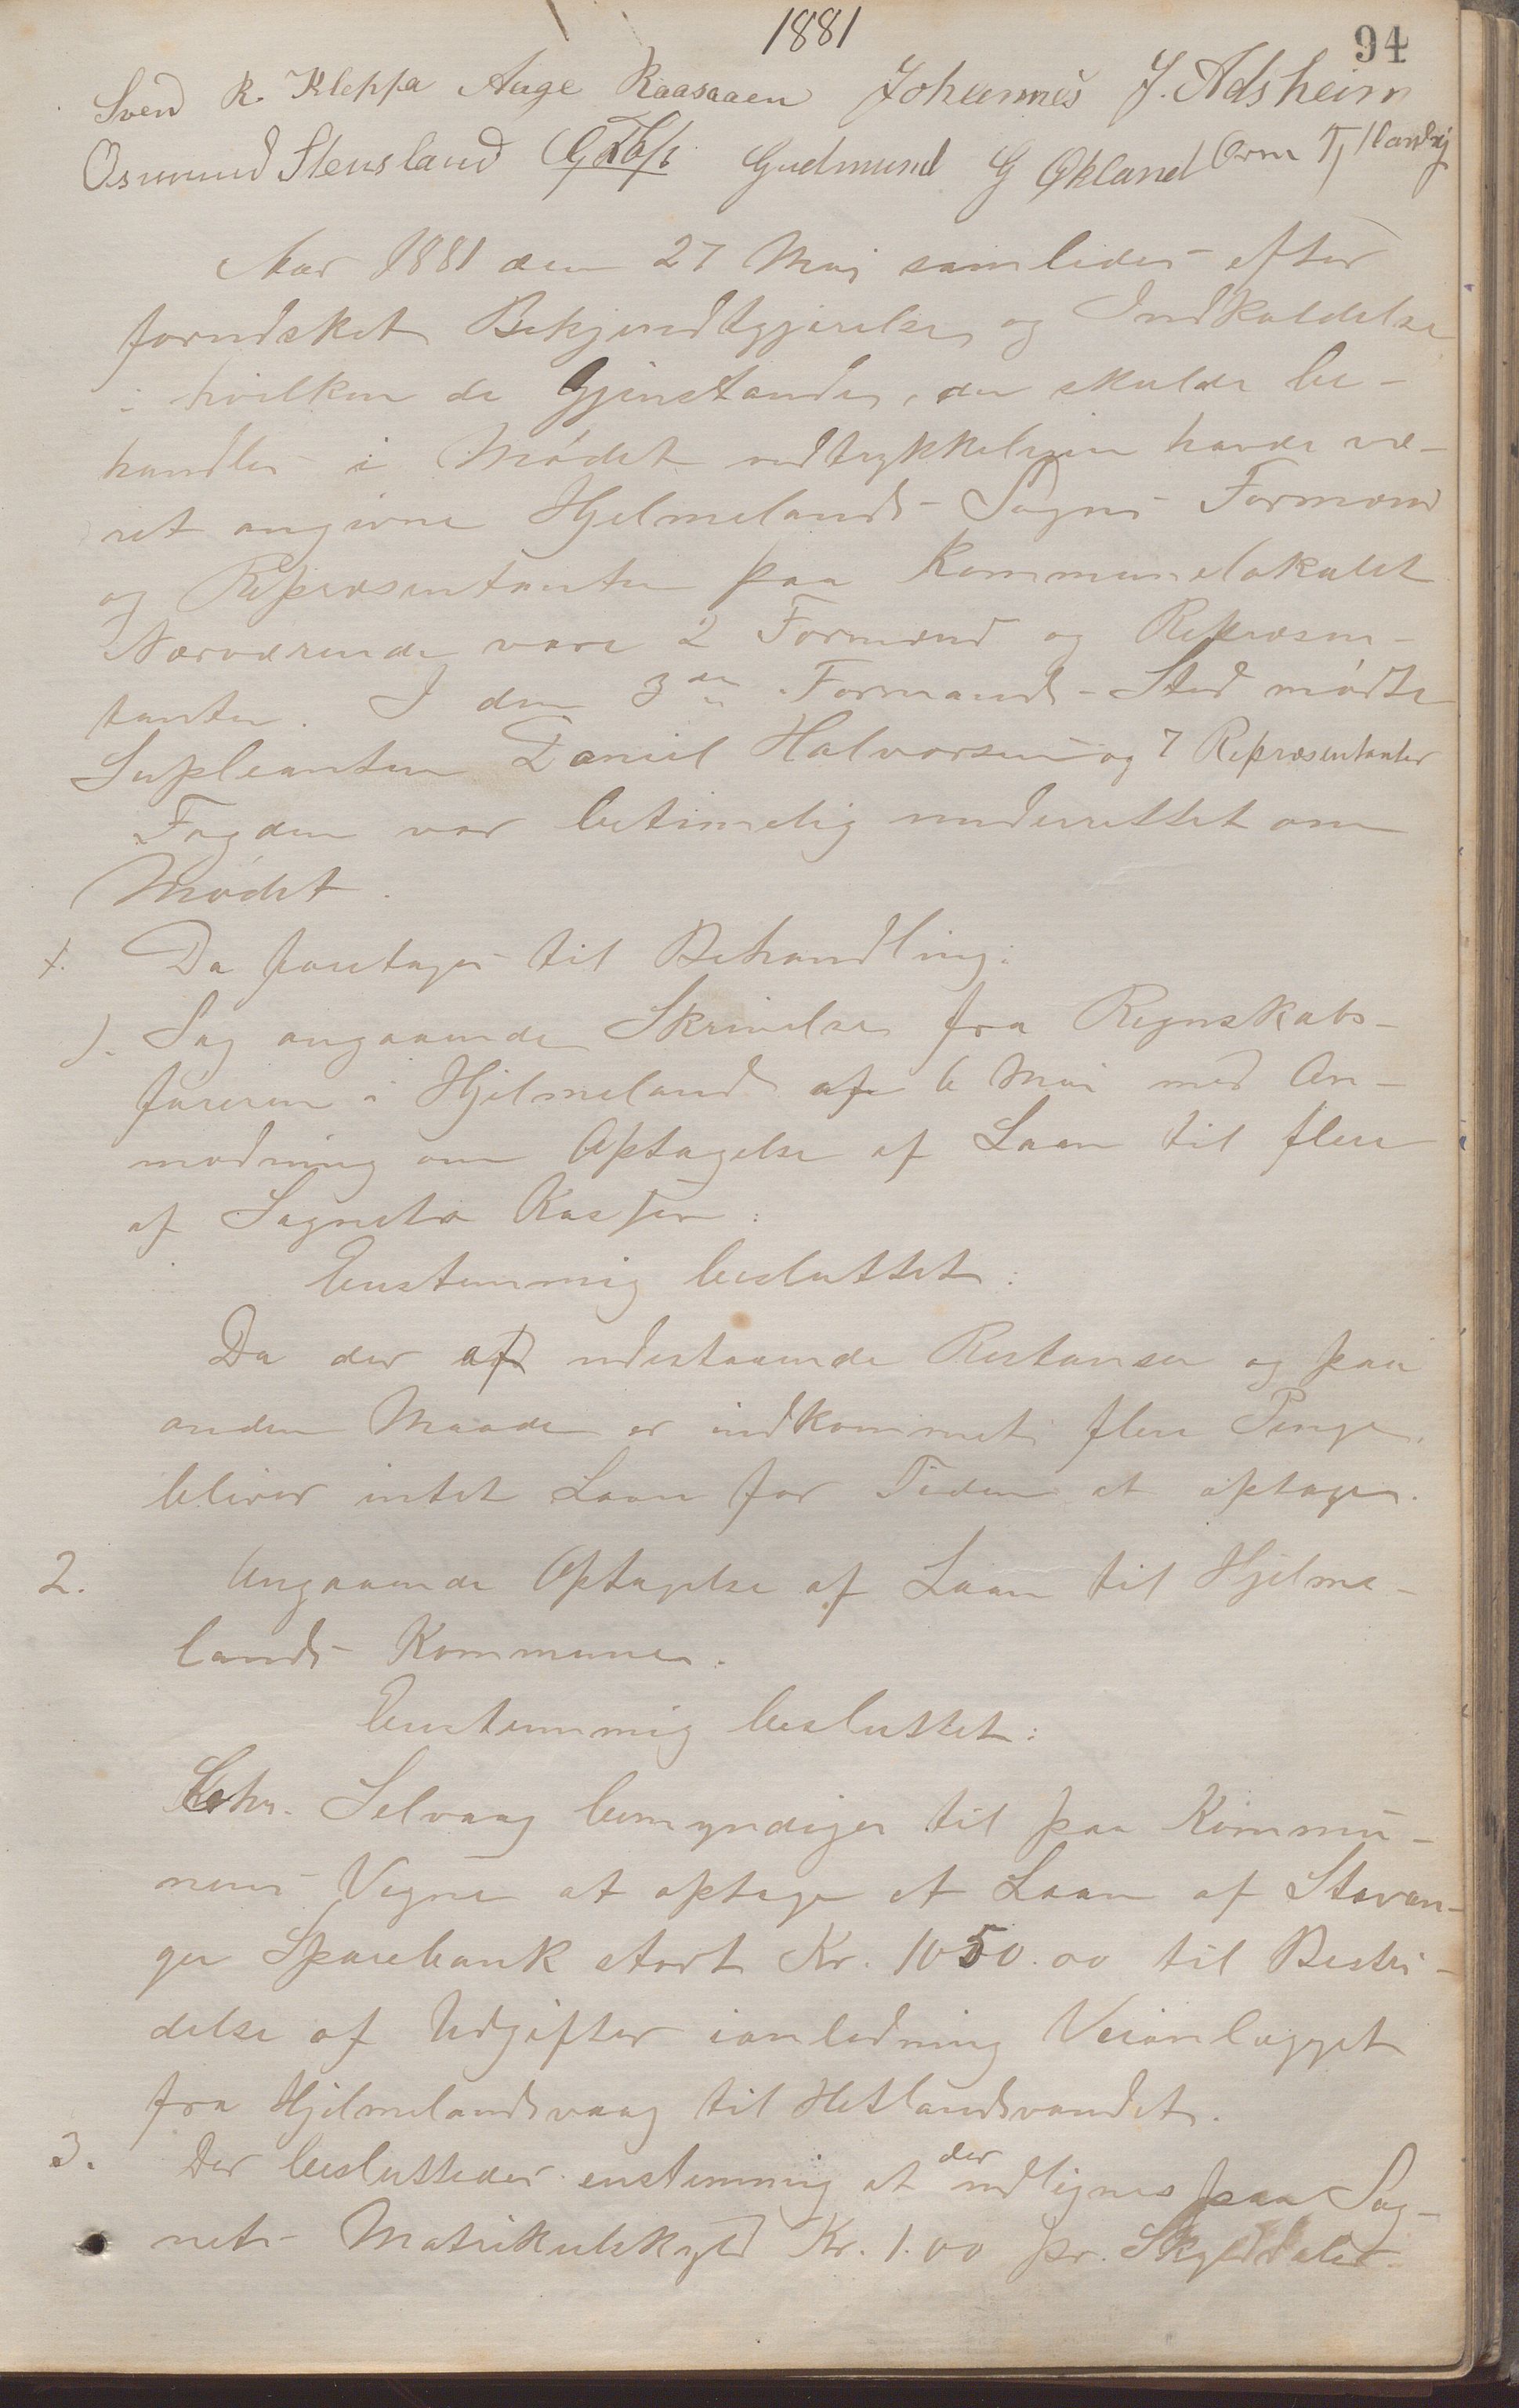 1881
94
Sven R. Kleppa Aage Raasaaen Johannes J. Adsheim
Osmund Stensland Gudmund G Økland Orm
Aar 1881 den 27 Mai samledes efter
forudsket Bekjendtgjørelse og Indkaldelse
i hvilken de Gjenstande, der skulde be-
handles i Mødet udtrykkeligen havde væ-
ret angivne Hjelmelands Sogns Formænd
og Repræsentanter paa Kommunelokalet
Nærværende vare 2 Formænd og Repræsen-
tanter. I den 3die Formands Sted mødte
Supleanten Daniel Halvorsen og 7 Repræsentanter
Fogden var betimelig underrettet om
Mødet.
Da foretages til Behandling:
1. Sag angaaende Skrivelse fra Regnskabs-
føreren i Hjelmeland af 6 Mai med An-
modning om Optagelse af Laan til flere
af Sognets Kasser:
Enstemmig besluttet:
Da der af udestaaende Restanser og paa
anden Maade er indkommet flere Penge,
bliver intet Laan for Tiden at optages.
2. Angaaende Optagelse af Laan til Hjelme-
lands Kommune.
Enstemmig besluttet:
Chr. Selvaag bemyndiges til paa Kommu-
nens Vegne at optage et Laan af Stavan-
ger Sparebank stort Kr. 1050.00 til Bestri-
delse af Udgifter ianledning Veianlægget
fra Hjelmelandsvaag til Hetlandsvandet.
3. Der besluttedes enstemmig at der udlignes paa Sog-
nets Matrikulskyld Kr. 1.00 pr. Skylddaler